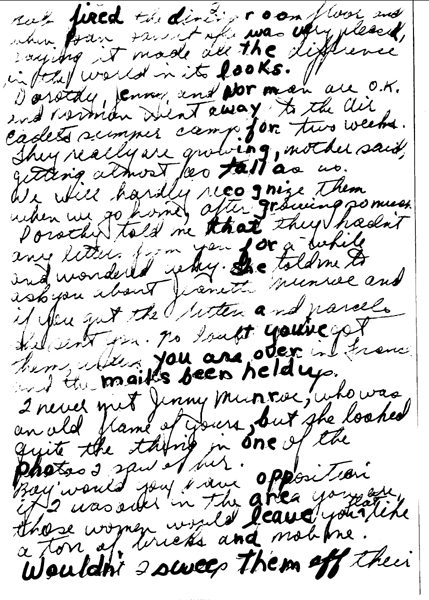 fixed the dining room floor and
when was very pleased,
saying it made all the difference
in the world in its looks.
Dorothy, Jenny and Norman are O.K.
and Norman went away to the Air
Cadets summer camp for two weeks.
They really are growing, mother said,
getting almost as tall as us.
We will hardly recognize them
when we go home, after growing so much.
Dorothy told me that they hadn't
any letters from you for a while
and wondered why. She told me to
ask you about Jeanette Munroe and
if you got the letters and parcels
she sent you. No doubt you've got
them you are over in France
and the mails been held up.
I never met Jenny Munroe, who was
an old flame of yours, but she looked
quite the thing in one of the
photos I saw of her.
Boy would you have opposition
if I was over in the area you are,
those women would leave you like
a ton of bricks and mob me.
Wouldn't I sweep them off their